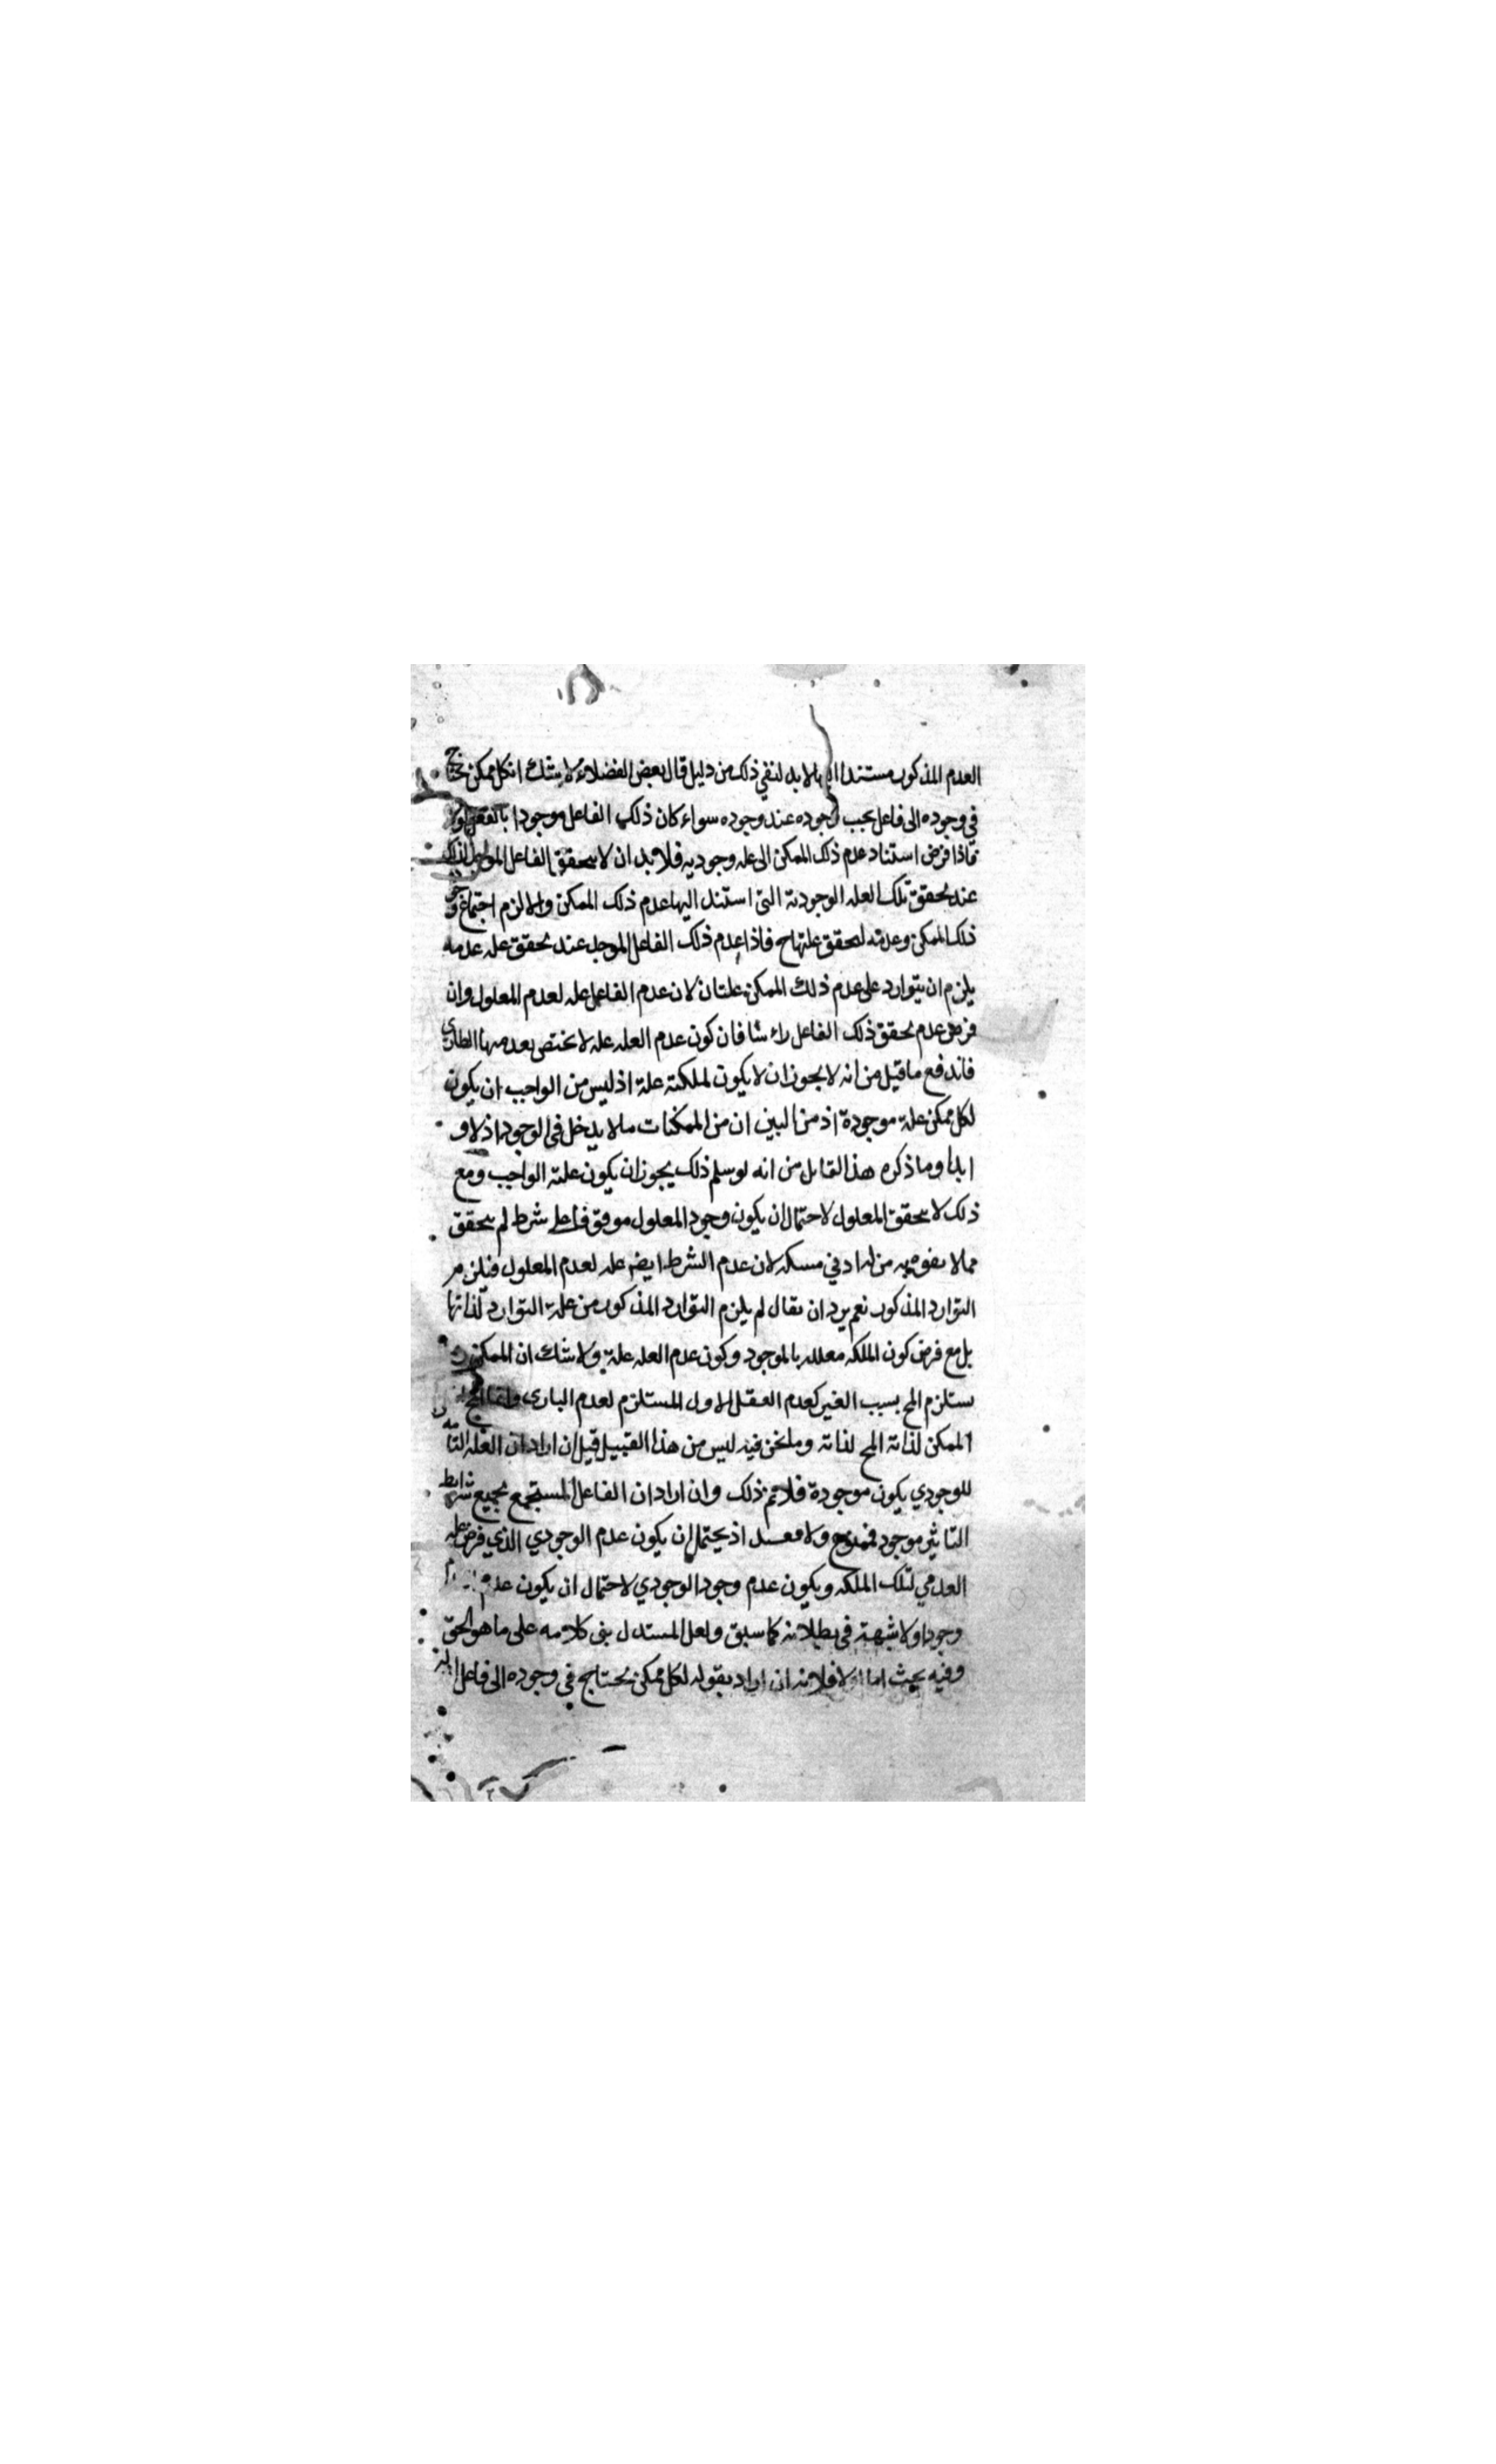 العدم المذكور مستندا اليها لابد لنفي ذلك من دليل قال بعض الفضلاء لا شك ان كل ممكن يحتاج
في وجوده الى فاعل يجب وجوده عند وجوده سواء كان ذلك الفاعل موجودا بالفعل او لا
فاذا فرض استناد عدم ذلك الممكن الى عله وجوديه فلابد ان لا يتحقق الفاعل الموجد لذلك
عند تحقق تلك العله الوجودية التي استند اليها عدم ذلك الممكن والا لزم اجتماع وجود
ذلك الممكن وعدمه لتحقق علتهاح فاذا عدم ذلك الفاعل الموجد عند تحقق عله عدمه
يلزم ان يتوارد على عدم ذلك الممكن علتان لان عدم الفاعل عله لعدم المعلول وان
فرض عدم تحقق ذلك الفاعل راسا فان كون عدم العله عله لا يختص بعدمها الطاري
فاندفع ما قيل من انه لا يجوز ان لا يكون لملكته علة اذ ليس من الواجب ان يكون
لكل ممكن علة موجودة اذ من البين ان من الممكنات ما لا يدخل في الوجود اذلا و
ابدا وما ذكره هذا القايل من انه لو سلم ذلك يجوز ان يكون علته الواجب ومع
ذلك لا يتحقق المعلول لاحتمال ان يكون وجود المعلول موقوفا على شرط لم يتحقق
مما لا يفوه به من له ادنى مسكه لان عدم الشرط ايضا عله لعدم المعلول فيلزم
التوارد المذكور نعم يرد ان يقال لم يلزم التوارد المذكور من علة التوارد لذاتها
بل مع فرض كون الملكه معلله بالموجود وكون عدم العله علة ولا شك ان الممكن
يستلزم المح بسبب الغير كعدم العقل الاول المستلزم لعدم الباري وانما المح
الممكن لذاتة المح لذاته وما نحن فيه ليس من هذا القبيل قيل ان اراد ان العله التامه
للوجودي يكون موجودة فلا تم ذلك وان اراد ان الفاعل المستجمع بجميع شرايط
التاثير موجود فممنوع ولا مفسد اذ يحتمل ان يكون عدم الوجودي الذي فرض عله
العدمي لتلك الملكه ويكون عدم وجود الوجودي لاحتمال ان يكون عدم
وجودا ولا شبهة في بطلانه كما سبق ولعل المستدل بنى كلامه على ما هو الحق
وفيه بحث اما اولا فلانه ان اراد بقوله لكل ممكن يحتاج في وجوده الى فاعل